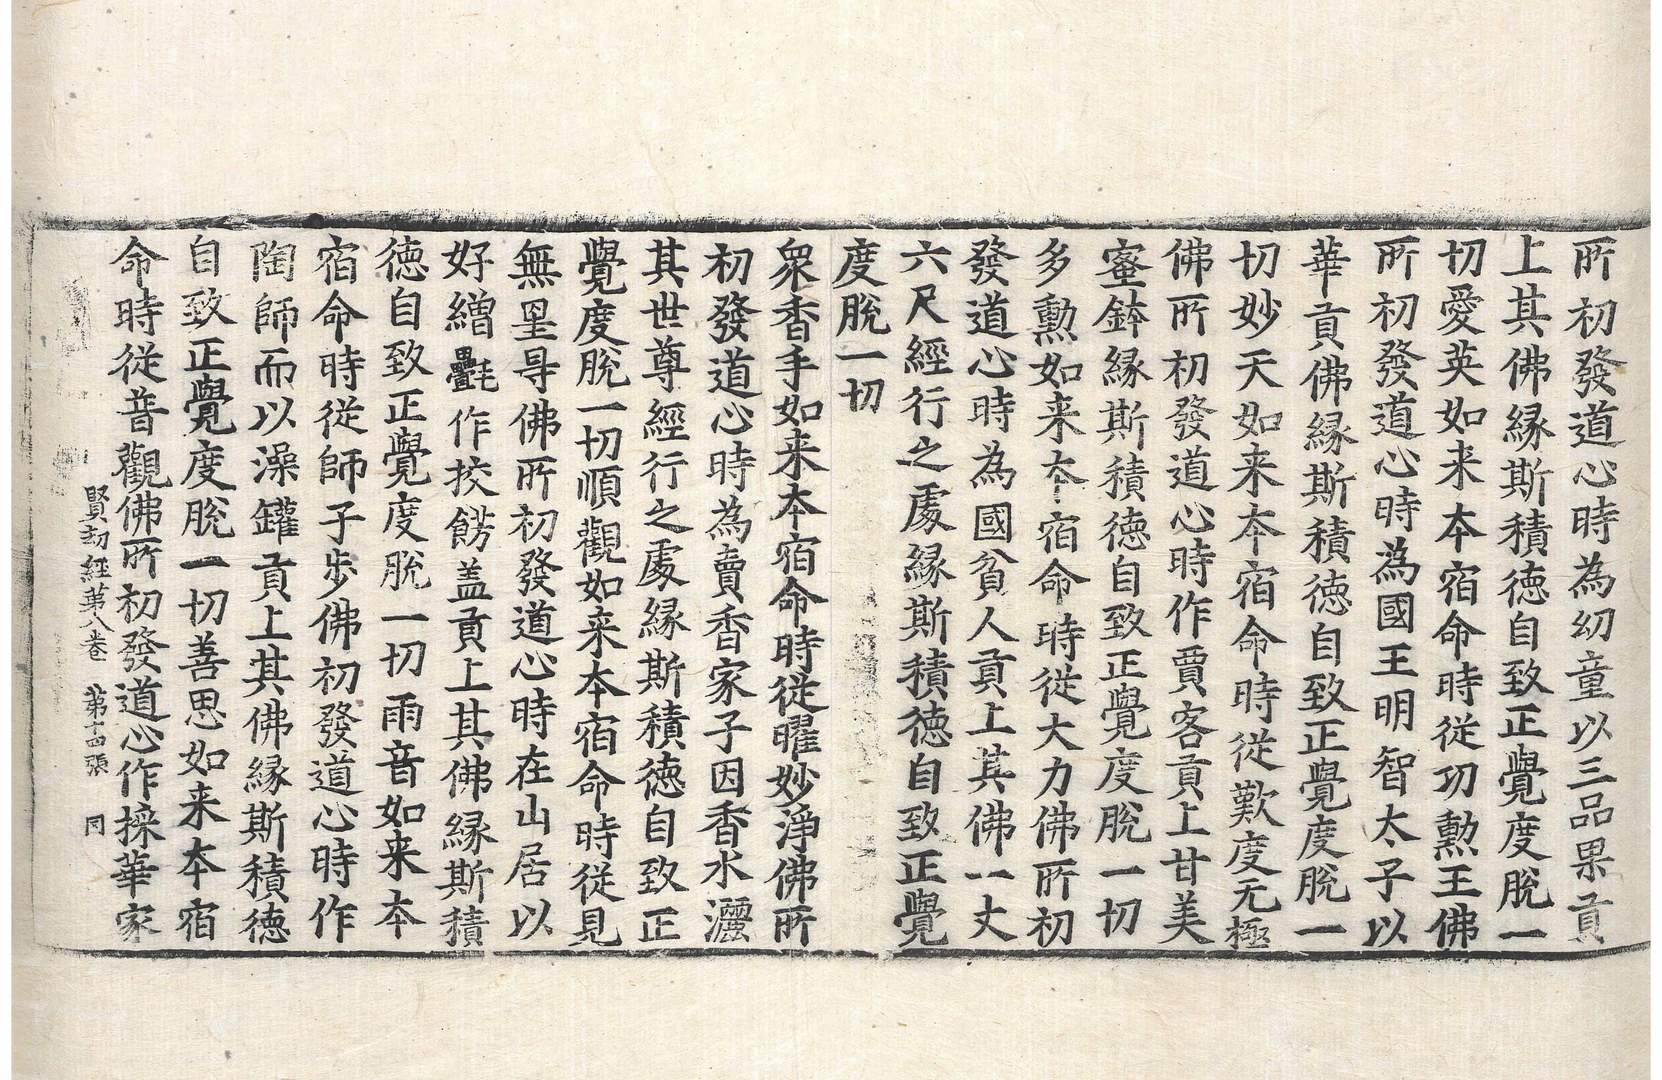 所初發道心時為幼童以三品果貢
上其佛緣斯積徳自致正覺度脫一
切愛英如来本宿命時從功勲王佛
所初發道心時為國王明智太子以
華貢佛緣斯積徳自致正覺度脫一
切妙天如来本宿命時從歎度无極
佛所初發道心時作賈客貢上甘美
蜜鉢緣斯積徳自致正覺度脫一切
多勲如来本宿命時從大力佛所初
發道心時為國貧人貢上其佛一丈
六尺經行之處緣斯積徳自致正覺
度脫一切
衆香手如来本宿命時從曜妙淨佛所
初發道心時為賣香家子因香水灑
其世尊經行之處緣斯積徳自致正
覺度脫一切順觀如来本宿命時從見
無罣㝵佛所初發道心時在山居以
好繒㲲作挍餝盖貢上其佛緣斯積
徳自致正覺度脫一切雨音如来本
宿命時從師子步佛初發道心時作
陶師而以澡罐貢上其佛緣斯積徳
自致正覺度脫一切善思如来本宿
命時從音觀佛所初發道心作採華家
賢劫經苐八卷 苐十四張 同